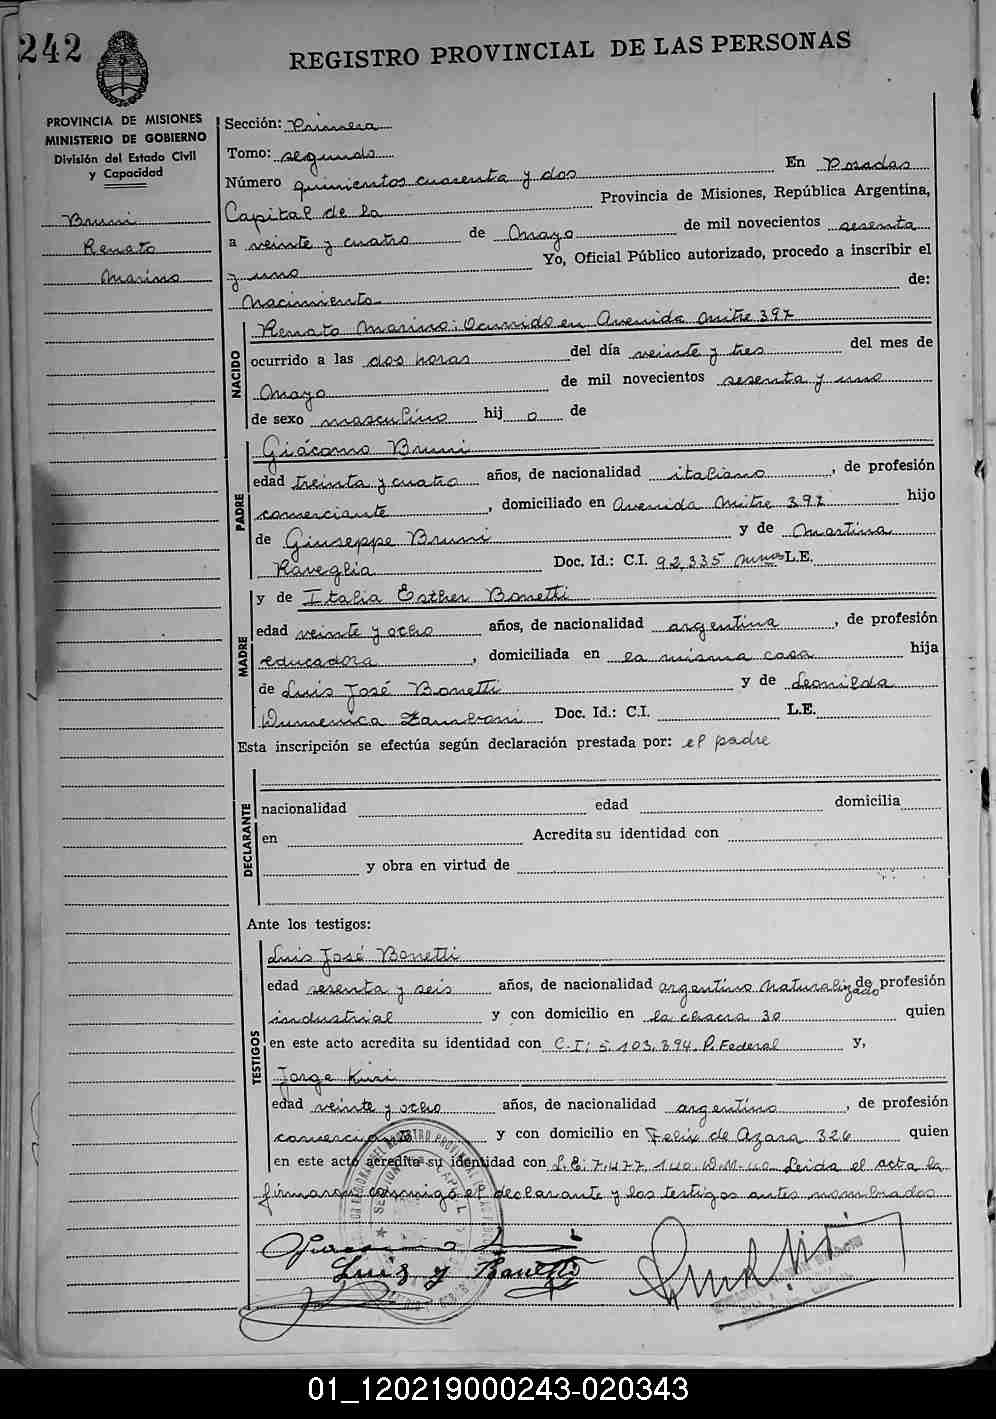 242
REGISTRO PROVINCIAL DE LAS PERSONAS
PROVINCIA DE MISIONES
MINISTERIO DE GOBIERNO
División del Estado Civil
y Capacidad
Bruni
Renato
Marino
Sección: Primera
Tomo: segundo
Número quinientos cuarenta y dos En Posadas
Capital de la Provincia de Misiones, República Argentina,
a veinte y cuatro de Mayo de mil novecientos sesenta
y uno Yo, Oficial Público autorizado, procedo a inscribir el
Nacimiento de:
NACIDO
Renato Marino: Ocurrido en Avenida Mitre 397
ocurrido a las dos horas del día veinte y tres del mes de
Mayo de mil novecientos sesenta y uno
de sexo masculino hij o de
PADRE
Giácomo Bruni
edad treinta y cuatro años, de nacionalidad italiano, de profesión
comerciante, domiciliado en Avenida Mitre 397 hijo
de Giuseppe Bruni y de Martina
Raveglia Doc. Id.: C.I. 92.335 Mnes L.E.
MADRE
y de Italia Esther Bonetti
edad veinte y ocho años, de nacionalidad argentina, de profesión
educadora, domiciliada en la misma casa hija
de Luis José Bonetti y de Leonilda
Dumenica Zamboni Doc. Id.: C.I. L.E.
Esta inscripción se efectúa según declaración prestada por: el padre
DECLARANTE
nacionalidad edad domicilia
en Acredita su identidad con
y obra en virtud de
Ante los testigos:
TESTIGOS
Luis José Bonetti
edad sesenta y seis años, de nacionalidad argentino naturalizado de profesión
industrial y con domicilio en la chacra 30 quien
en este acto acredita su identidad con C.I: 5.103.394. P. Federal y,
Jorge Kuri
edad veinte y ocho años, de nacionalidad argentino, de profesión
comerciante y con domicilio en Felix de Azara 326 quien
en este acto acredita su identidad con L.E: 7.477.140. D.M. 40. Leida el acta la
firmaron conmigo el declarante y los testigos antes nombrados
Luis J Bonetti
01_120219000243-020343